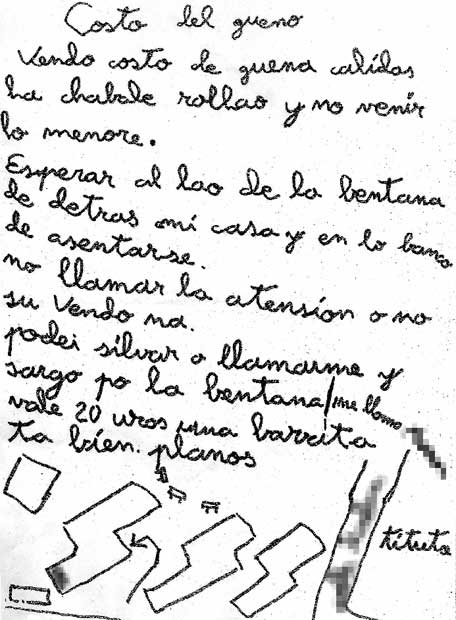 Costo del gueno
Vendo costo de guena calidas
ha chabale rollao y no venir
lo menore.
Esperar al lao de la bentana
de detras mi casa y en lo banco
de asentarse.
no llamar la atensión o no
su Vendo na.
podei silvar o llamarme y
sargo po la bentana / me llamo
vale 20 uros una barrita
ta bien. planos
tituto